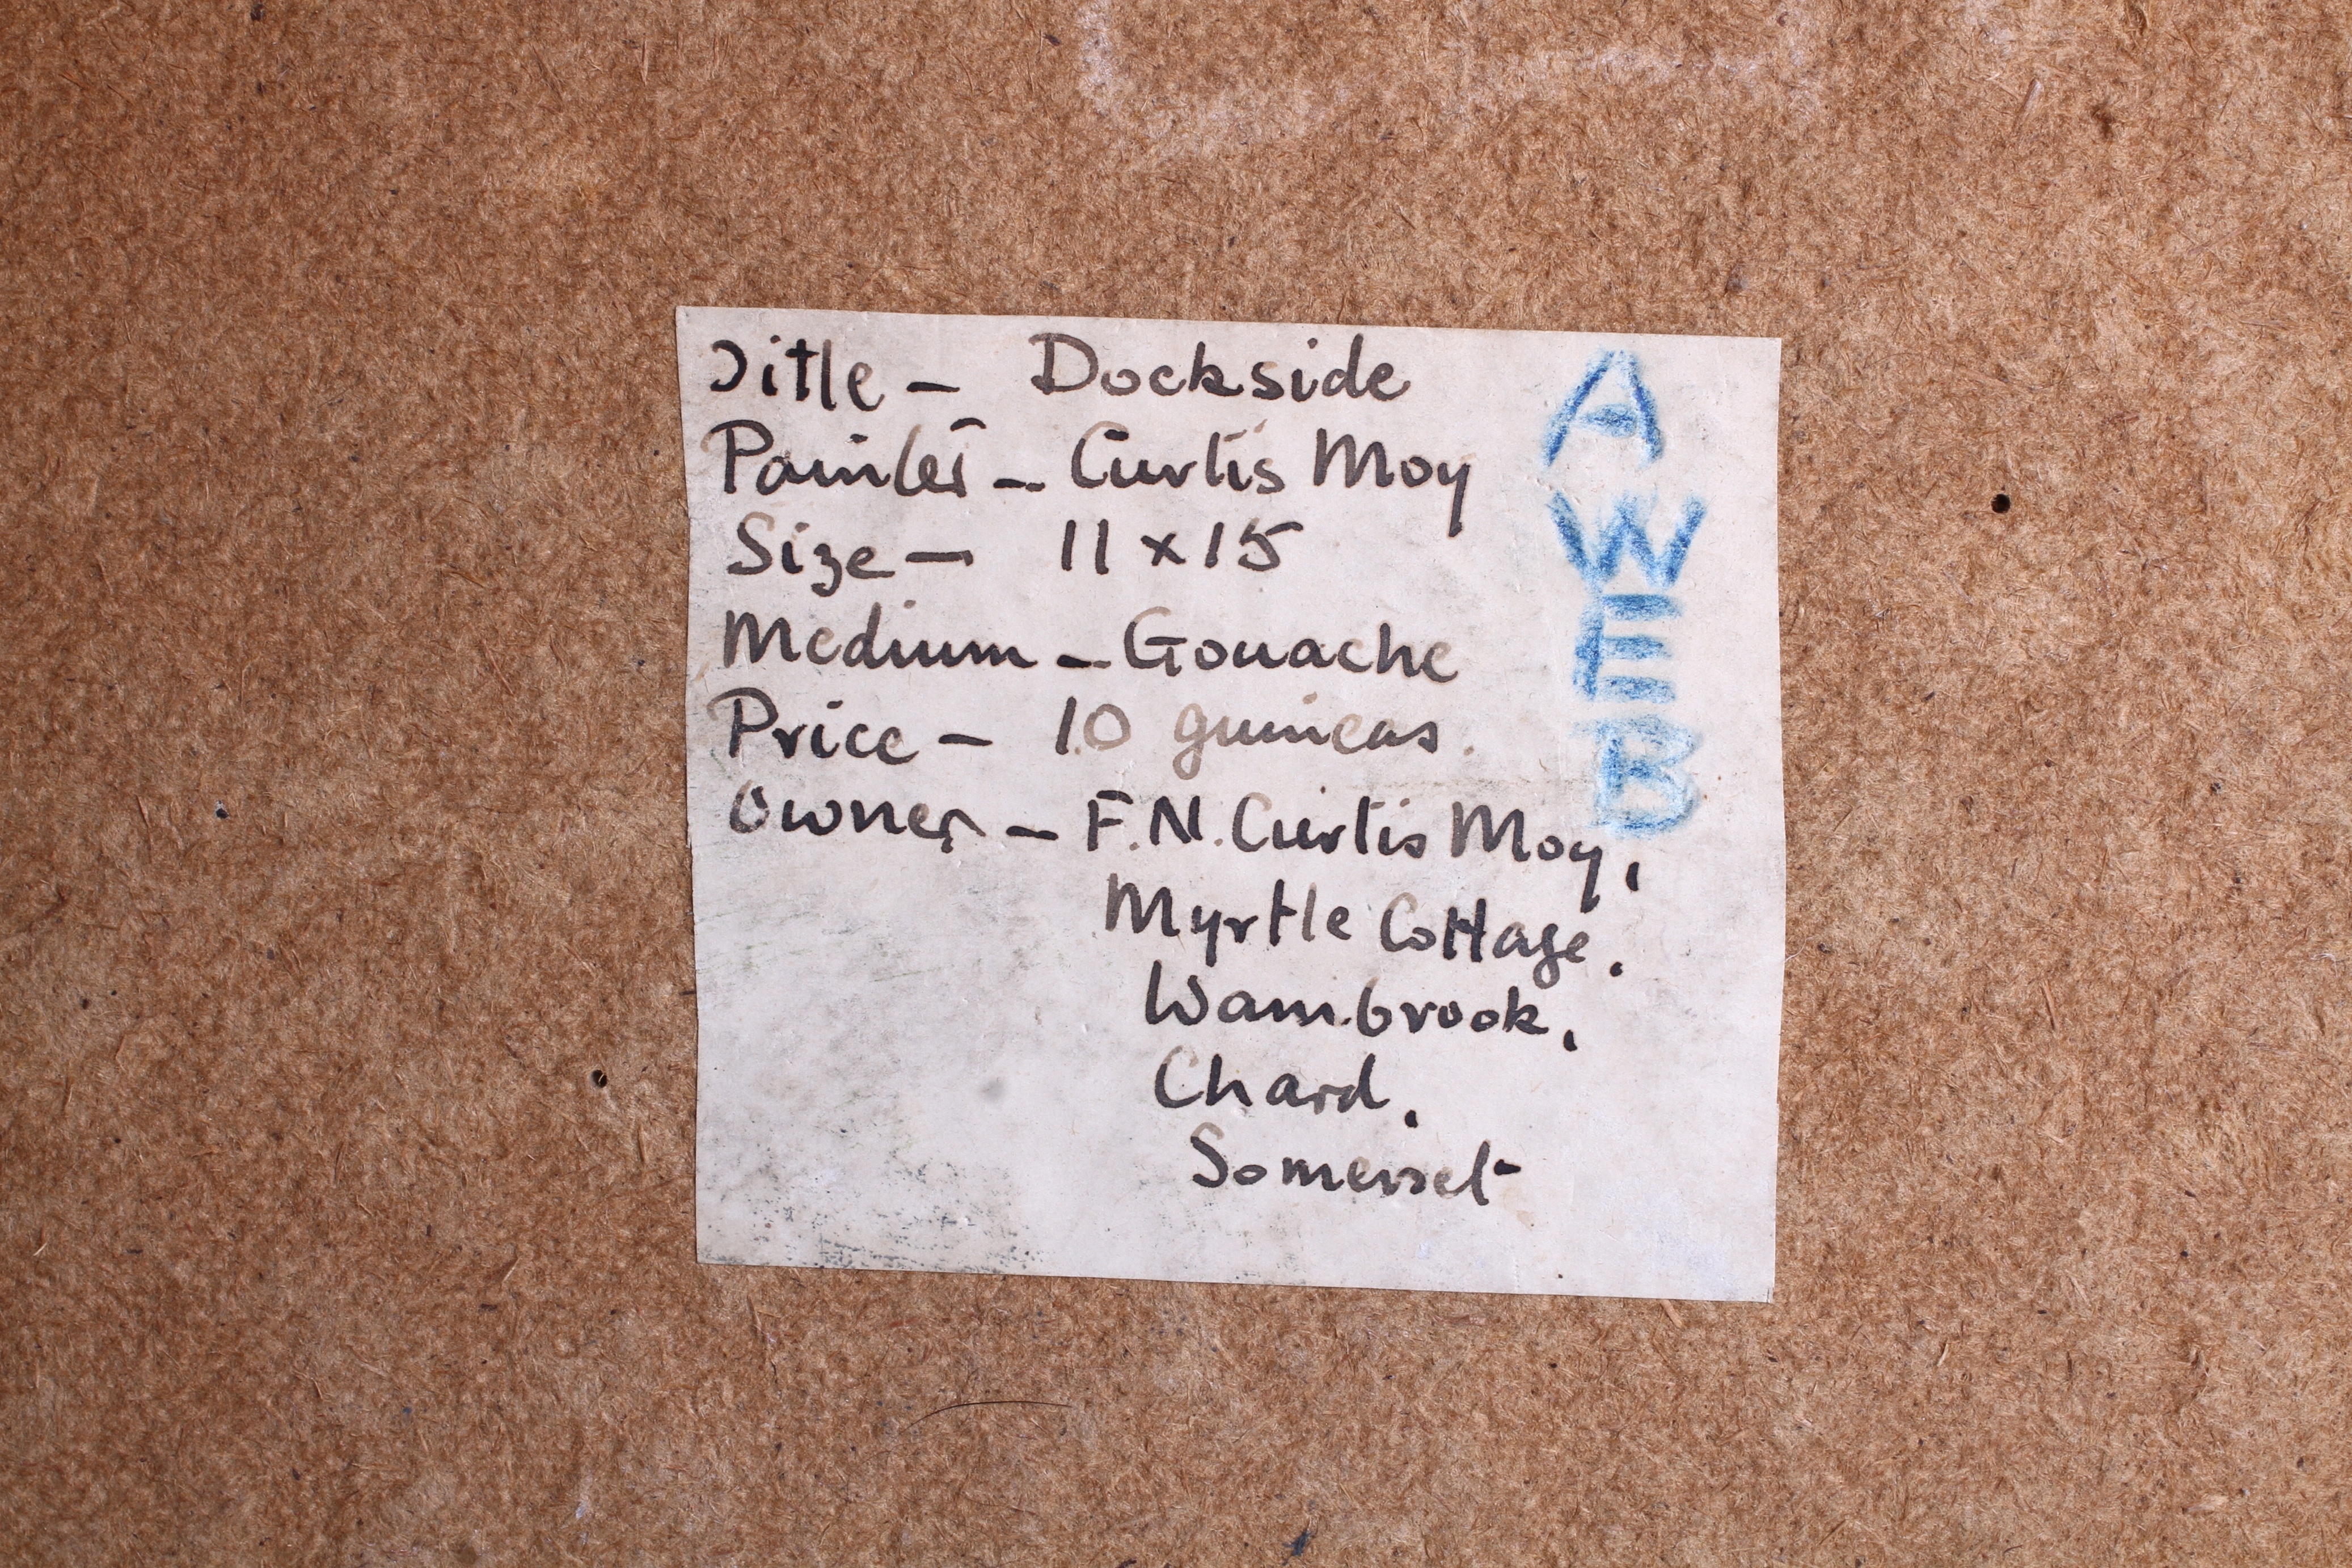 Title - Dockside
Painter - Curtis Moy
Size - 11 x 15
Medium - Gouache
Price - 10 guineas.
Owner - F.N. Curtis Moy,
Myrtle Cottage,
Wambrook,
Chard,
Somerset
A
W
E
B